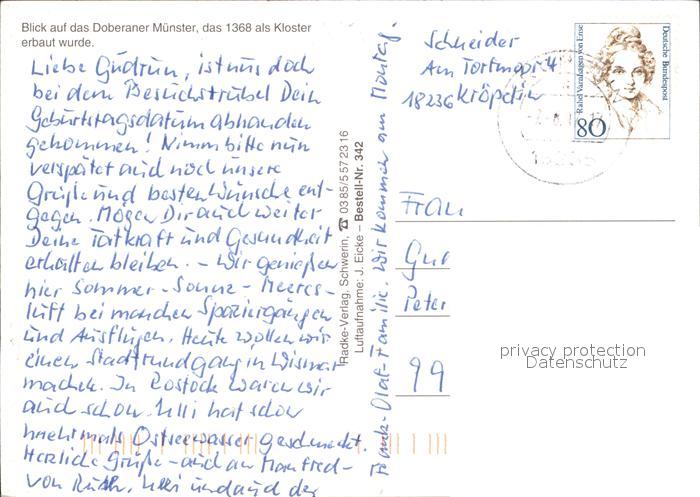 Blick auf das Doberaner Münster, das 1368 als Kloster
erbaut wurde.
Liebe Gudrun, ist uns doch
bei dem Besuchstrubel Dein
Geburtstagsdatum abhanden
gekommen! Nimm bitte nun
verspätet auch noch unsere
Grüße und besten Wünsche ent-
gegen. Mögen Dir auch weiter
Deine Tatkraft und Gesundheit
erhalten bleiben. – Wir genießen
hier Sommer-Sonne-Meeres-
luft bei manchen Spaziergängen
und Ausflügen. Heute wollen wir
einen Stadtrundgang in Wismar
machen. In Rostock waren wir
auch schon. Ulli hat schon
mehrmals Ostseewasser geschmeckt.
Herzliche Grüße – auch an Manfred –
von Ruth, Ulli und auch der
Frank-Olaf-Familie. Wir kommen am Montag.
Radke-Verlag, Schwerin, ☎ 0385/5572316
Luftaufnahme: J. Eicke – Bestell-Nr. 342
Schneider
Am Tortmoor 4
18236 Kröpelin
Rahel Varnhagen von Ense
Deutsche Bundespost
80
Frau
Gu
Peter
99
privacy protection
Datenschutz